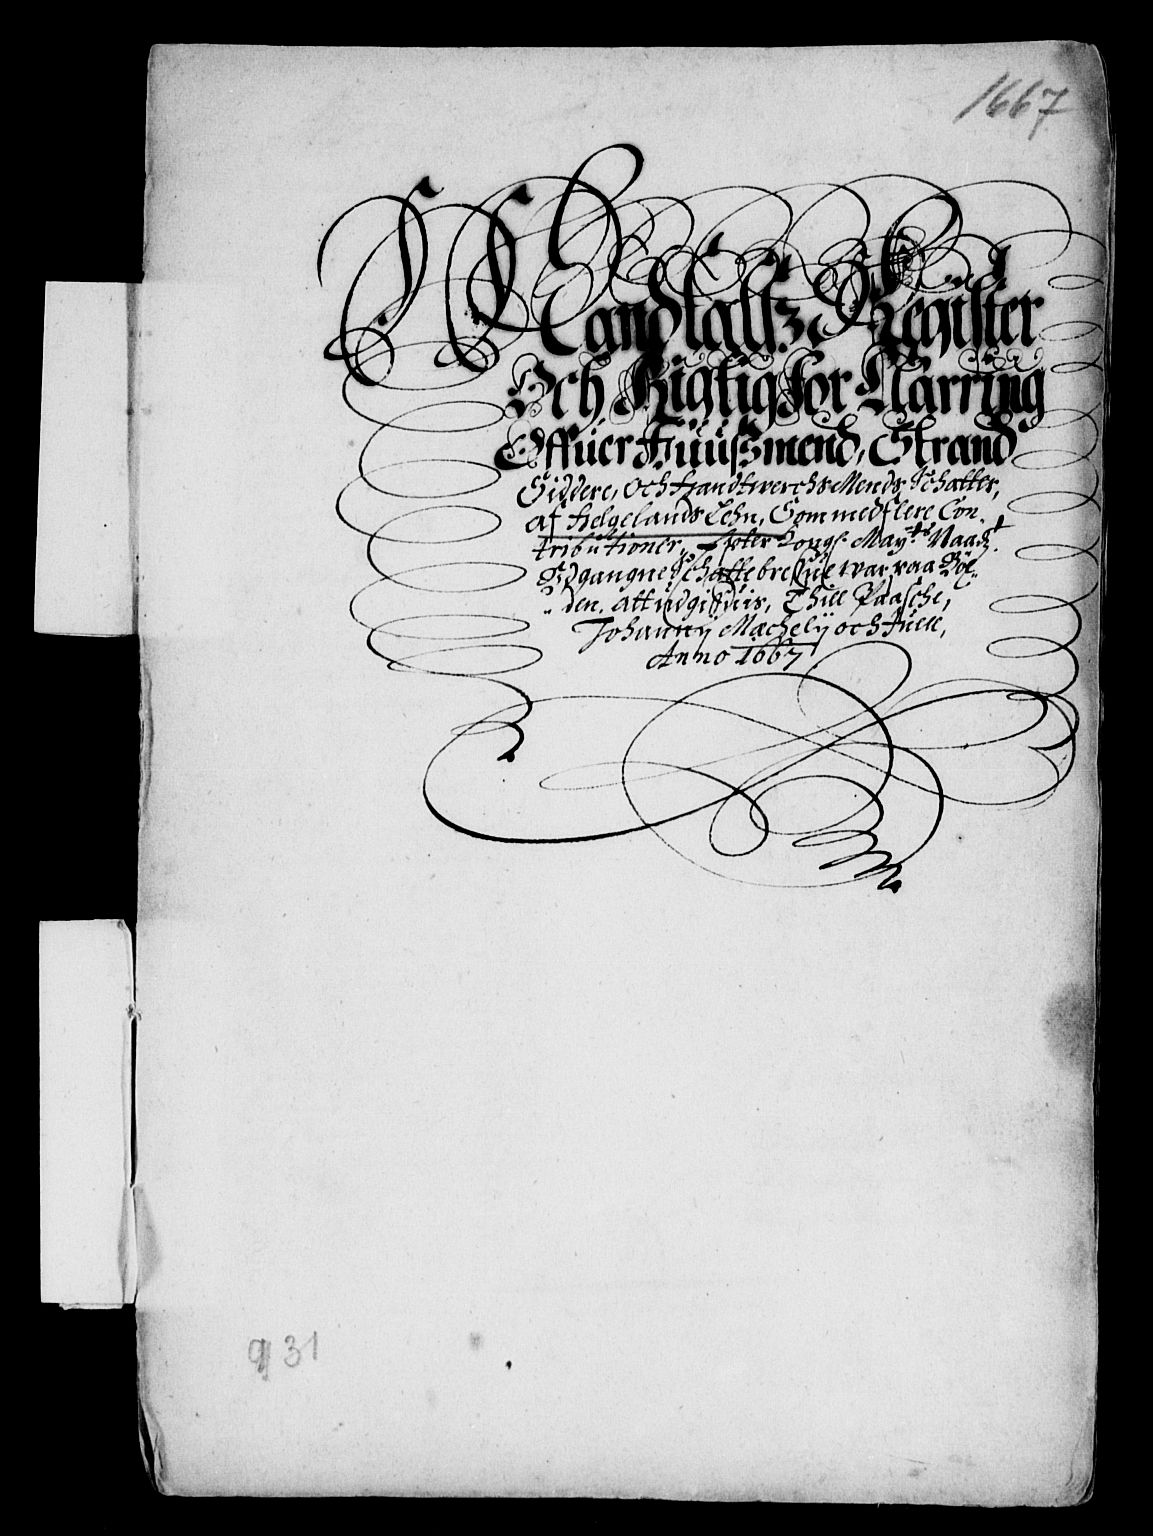 1667
Mandtallz Register
Och Rigtig For Klarring
Offuer Huußmend, Strand
Siddere, och Handtwerchs Mends Schatter,
af Helgelands Lehn, Som med flere Con¬
tributioner, Epter Kongl. May:ts Naad:st
Udgangne Schattebreffue war paa Böe¬
den, att udgiffuis, Thill Paasche,
Johannij Machelij och Juell,
Anno 1667
9 31